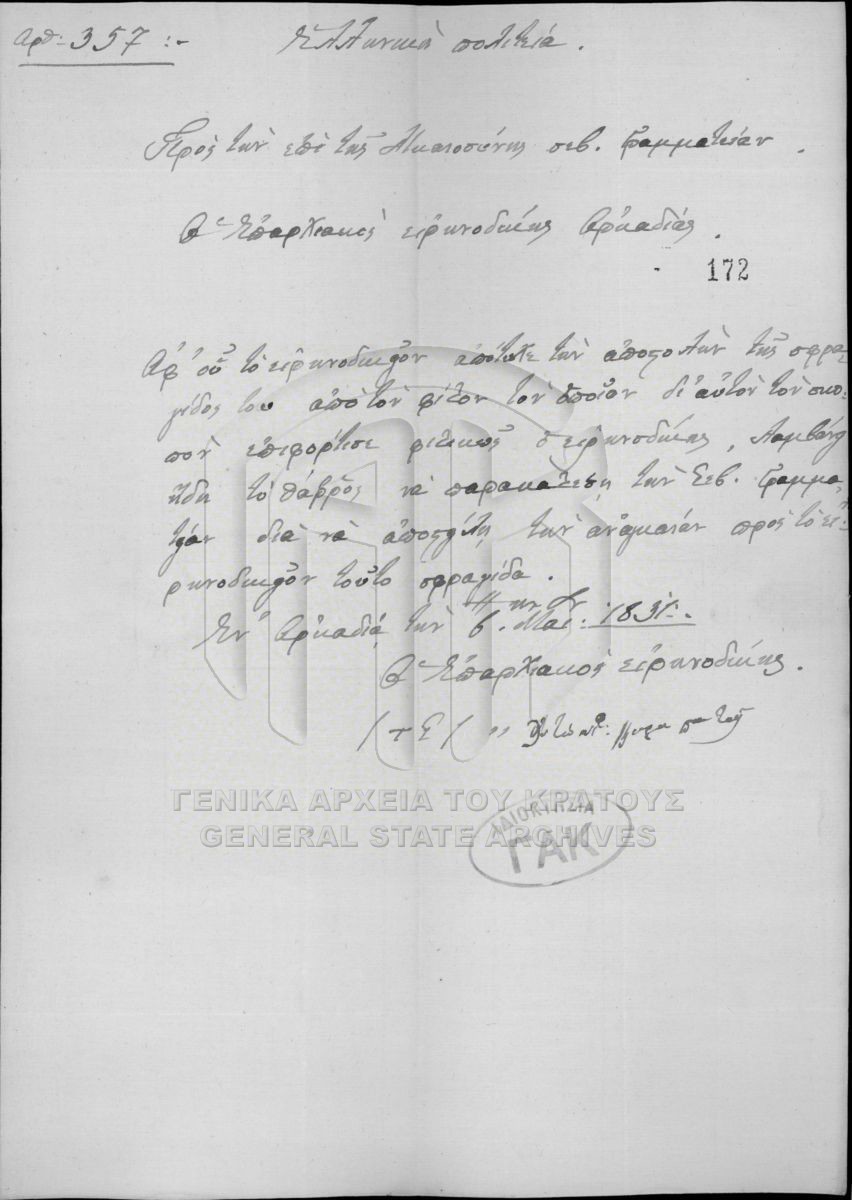 Αρθ: 357:-
Ἑλληνικὴ πολιτεία.
Πρὸς τὴν ἐπὶ τῆς Δικαιοσύνης σεβ. Γραμματείαν.
Ὁ Ἐπαρχιακὸς εἰρηνοδίκης Ἀρκαδίας.
172
Ἀφ' οὗ τὸ εἰρηνοδικεῖον ἀπέτυχε τὴν ἀποστολὴν τῆς σφρα-
γίδος του ἀπὸ τὸν φίλον τὸν ὁποῖον δι' αὐτὸν τὸν σκο-
πὸν ἐπιφόρτισε φιλικῶς ὁ εἰρηνοδίκης, λαμβάνει
ἤδη τὸ θάρρος νὰ παρακαλέσῃ τὴν Σεβ. Γραμμα-
τείαν διὰ νὰ ἀποστείλῃ τὴν ἀναγκαίαν πρὸς τὸ εἰ-
ρηνοδικεῖον τοῦτο σφραγίδα.
Ἐν Ἀρκαδίᾳ τὴν 6. Μαΐ: 1831:.
Ὁ Ἐπαρχιακὸς εἰρηνοδίκης.
(τ Σ)
ΓΕΝΙΚΑ ΑΡΧΕΙΑ ΤΟΥ ΚΡΑΤΟΥΣ
GENERAL STATE ARCHIVES
ΙΔΙΟΚΤΗΣΙΑ
ΓΑΚ